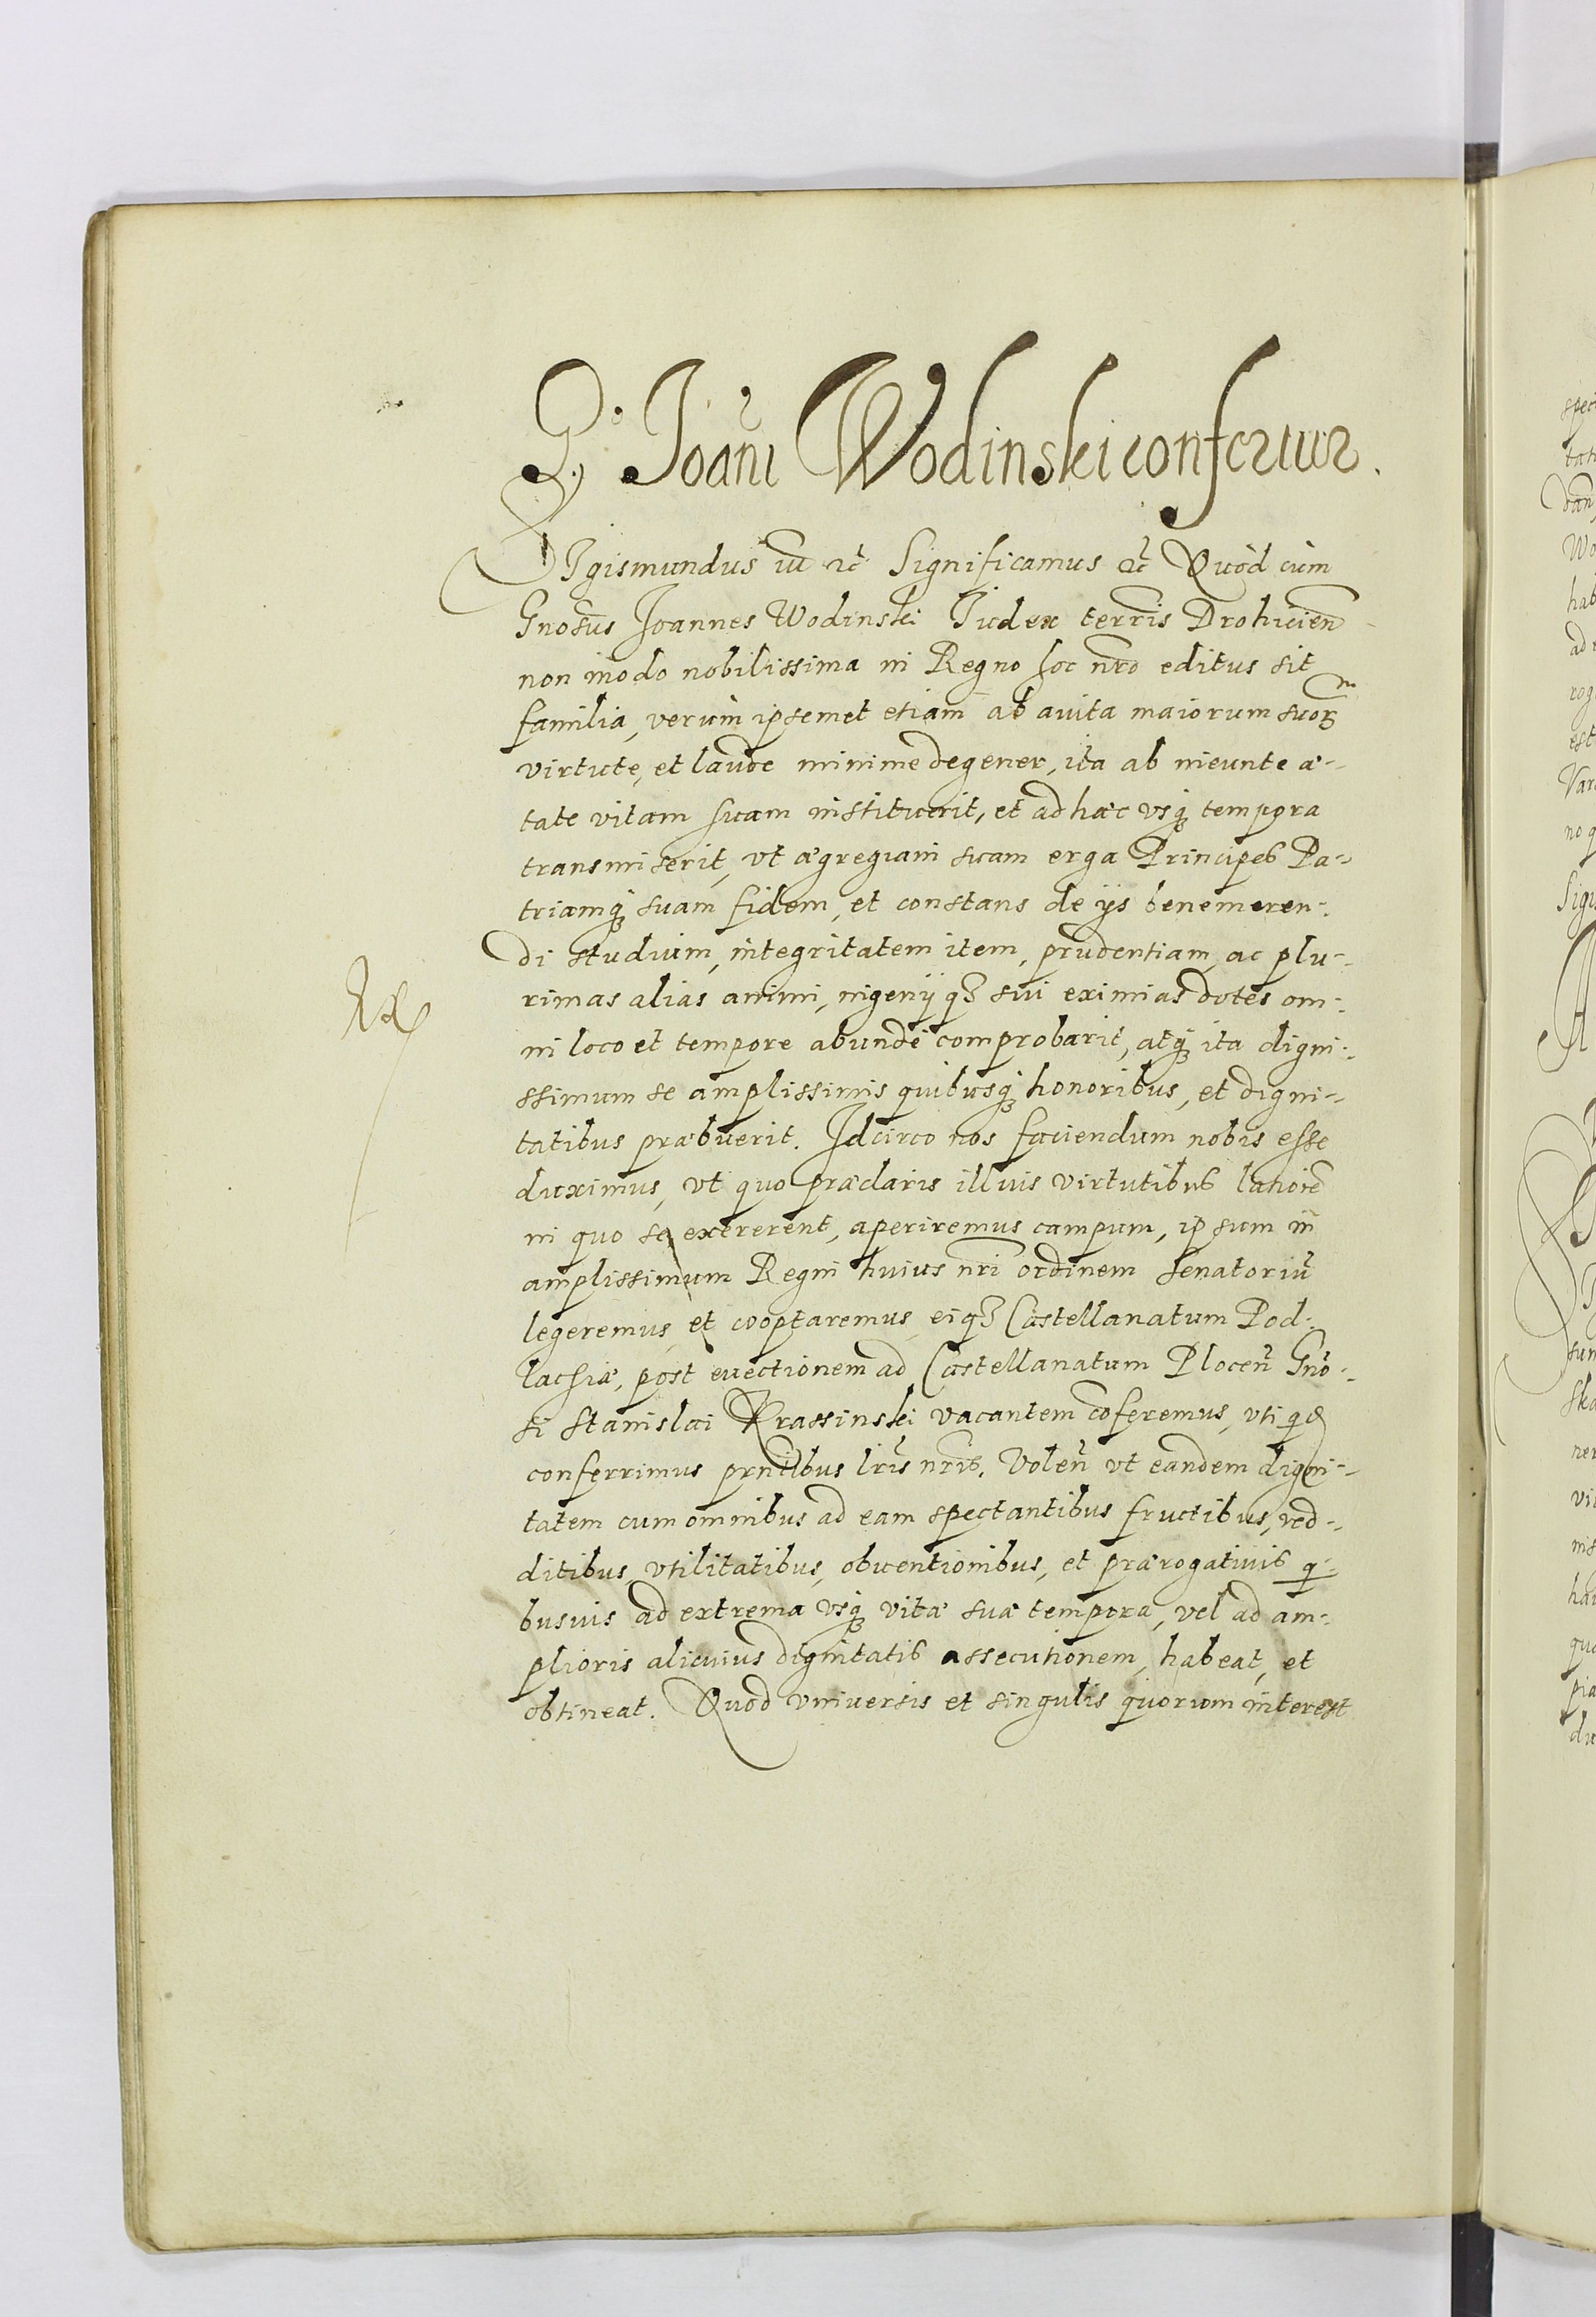 G. Joani Wodinski confertur.
SIgismundus iii etc Significamus etc Quòd cùm
Gnosus Joannes Wodinski Judex terris Drohicien
non modo nobilissima in Regno hoc nro editus sit
familia, verùm ipsemet etiam ab avita maiorum suorum
virtute, et laude minime degener, ita ab ineunte æ-
tate vitam suam instituerit, et ad hæc usq tempora
transmiserit, vt ægregiam suam erga Principes Pa-
triamq suam fidem, et constans de ijs benemeren-
di studium, integritatem item, prudentiam, ac plu-
rimas alias animi, ingenij q3 sui eximias dotes om-
ni loco et tempore abunde comprobarit, atq ita digni-
ssimum se amplissimis quibusq honoribus, et digni-
tatibus præbuerit. Idcirco nos faciendum nobis esse
duximus, vt quo præclaris illius virtutibus latiore
in quo se exererent, aperiremus campum, ipsum in
amplissimum Regni huius nri ordinem senatoriu
legeremus, et cooptaremus, eiq3 Castellanatum Pod-
lachiæ, post euectionem ad Castellanatum Plocen Gno-
si Stanislai Krassinski vacantem coferemus, vti qd
conferrimus prntibus lris nris. Volen vt eandem digni-
tatem cum omnibus ad eam spectantibus fructibus, red-
ditibus, vtilitatibus, obuentionibus, et prærogatiuis q-
busuis ad extrema vsq vitæ suæ tempora, vel ad am-
plioris alicuius dignitatis assecutionem, habeat, et
obtineat. Quod vniversis et singulis quorum interest